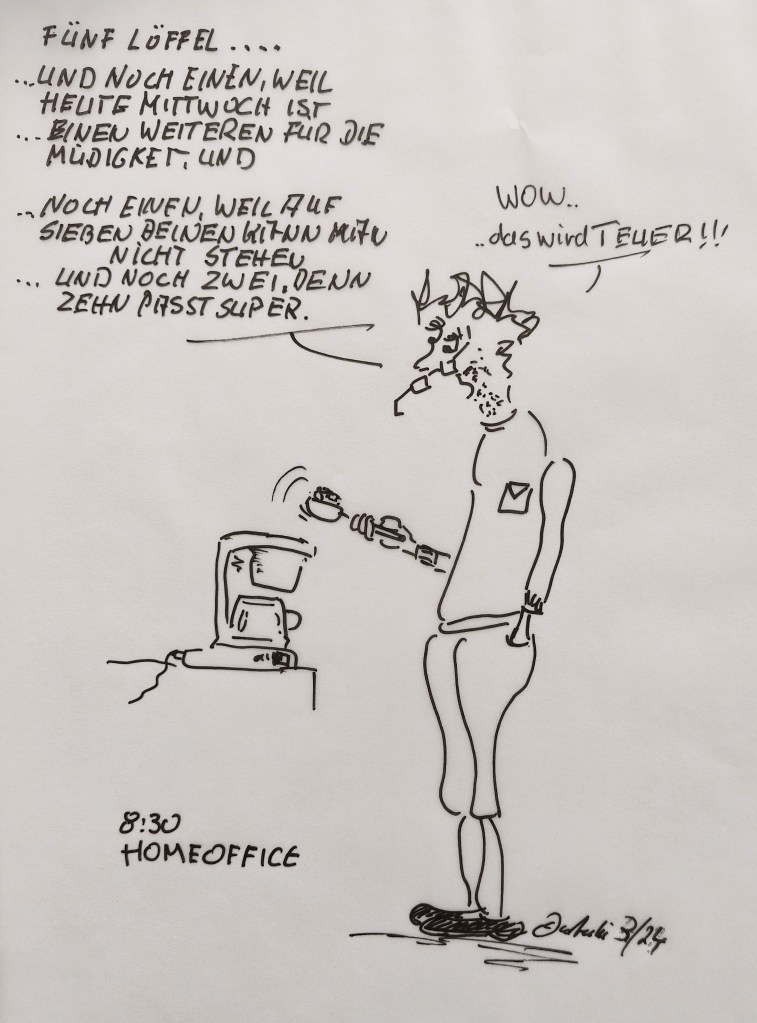 FÜNF LÖFFEL ....
...UND NOCH EINEN, WEIL
HEUTE MITTWOCH IST
... EINEN WEITEREN FÜR DIE
MÜDIGKET, UND
... NOCH EINEN, WEIL AUF
SIEBEN BEINEN KANN MAN
NICHT STEHEN
... UND NOCH ZWEI, DENN
ZEHN PASST SUPER.
WOW..
..das wird TEUER!!!
8:30
HOMEOFFICE
3/24